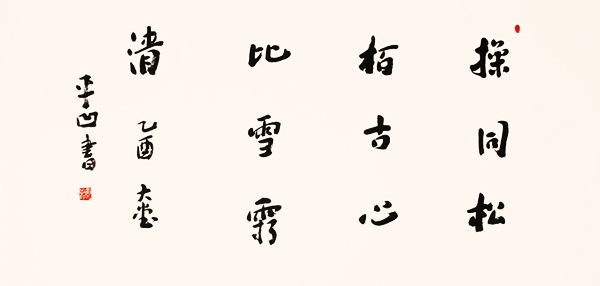 操同松
柏古心
比雪霜
清 乙酉 大堂
平凹書